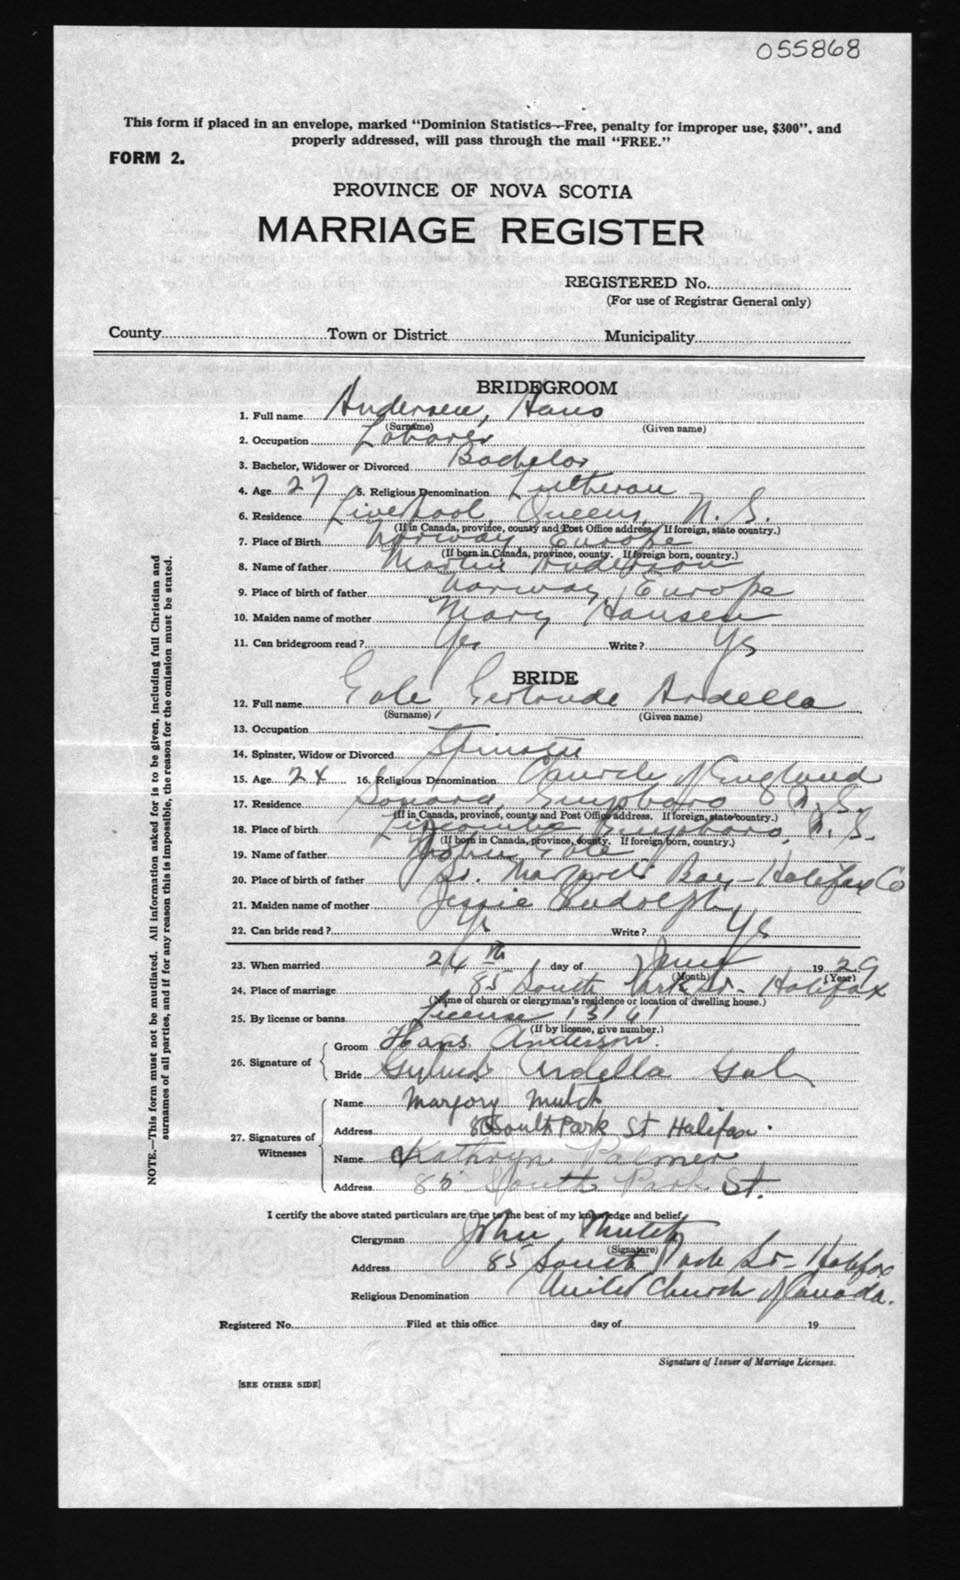 055868
This form if placed in an envelope, marked "Dominion Statistics—Free, penalty for improper use, $300", and
properly addressed, will pass through the mail "FREE."
FORM 2.
PROVINCE OF NOVA SCOTIA
MARRIAGE REGISTER
REGISTERED No.
(For use of Registrar General only)
County Town or District Municipality
BRIDEGROOM
1. Full name Andersen, Hans
(Surname) (Given name)
2. Occupation Laborer
3. Bachelor, Widower or Divorced Bachelor
4. Age 27 5. Religious Denomination Lutheran
6. Residence Liverpool, Queens, N. S.
(If in Canada, province, county and Post Office address. If foreign, state country.)
7. Place of Birth Norway Europe
(If born in Canada, province, county. If foreign born, country.)
8. Name of father Martin Anderson
9. Place of birth of father Norway, Europe
10. Maiden name of mother Mary Hansen
11. Can bridegroom read? Yes Write? Yes
BRIDE
12. Full name Gale, Gertrude Ardella
(Surname) (Given name)
13. Occupation
14. Spinster, Widow or Divorced Spinster
15. Age 24 16. Religious Denomination Church of England
17. Residence Sonora, Guysboro N. S.
(If in Canada, province, county and Post Office address. If foreign, state country.)
18. Place of birth Guysboro, N. S.
(If born in Canada, province, county. If foreign born, country.)
19. Name of father John Gale
20. Place of birth of father St. Margarets Bay - Halifax Co
21. Maiden name of mother Jessie Rudolph
22. Can bride read? Yes Write? Yes
23. When married 24th day of June 1929
(Month) (Year)
24. Place of marriage 85 South Park St. - Halifax
(Name of church or clergyman's residence or location of dwelling house.)
25. By license or banns License 13161
(If by license, give number.)
26. Signature of
Groom Hans Anderson.
Bride Ardella Gale
27. Signatures of Witnesses
Name Marjory Mutch
Address 85 South Park St Halifax.
Name Kathryn Palmer
Address 85 South Park St.
I certify the above stated particulars are true to the best of my knowledge and belief.
Clergyman John Mutch
(Signature)
Address 85 South Park St - Halifax
Religious Denomination United Church of Canada.
Registered No. Filed at this office day of 19
Signature of Issuer of Marriage Licenses.
[SEE OTHER SIDE]
NOTE.—This form must not be mutilated. All information asked for is to be given, including full Christian and
surnames of all parties, and if for any reason this is impossible, the reason for the omission must be stated.